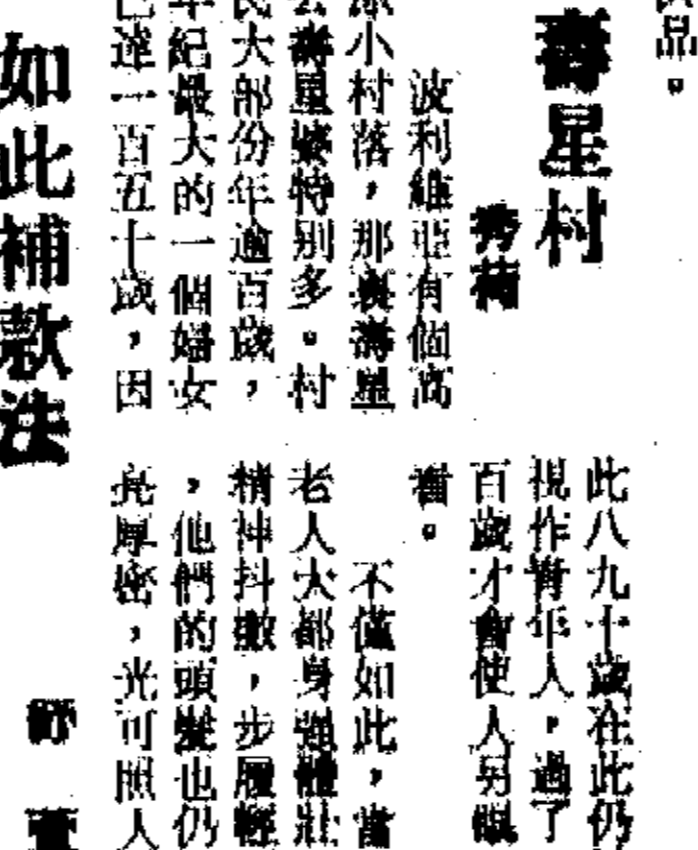 品。
壽星村
秀荷
波利維亞有個高
小村落，那裏壽星
壽星婆特別多。村
民大部份年逾百歲，
年紀最大的一個婦女
已達一百五十歲，因
此八九十歲在此仍
視作青年人，過了
百歲才會使人另眼
看。
不僅如此，當
老人大都身強體壯
精神抖擻，步履輕
，他們的頭髮也仍
亮厚密，光可照人
如此補救法
舒